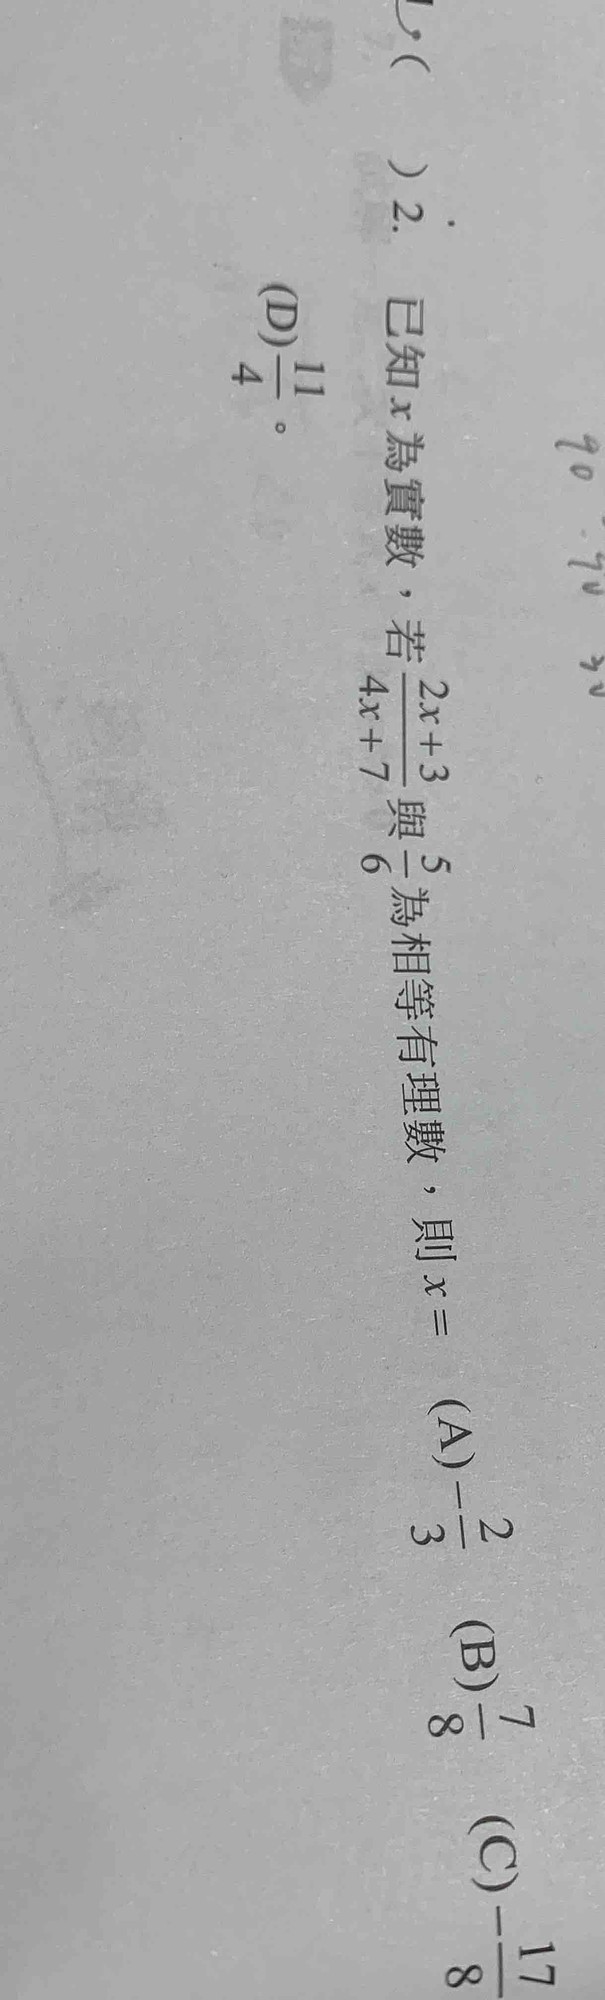 ( ) 2. 已知 x 為實數，若 \frac{2x+3}{4x+7} 與 \frac{5}{6} 為相等有理數，則 x = (A) -\frac{2}{3} (B) \frac{7}{8} (C) -\frac{17}{8}
(D) \frac{11}{4}。